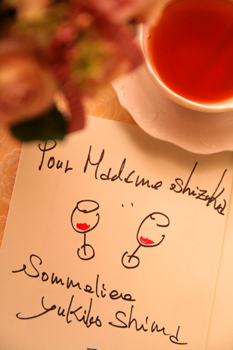 Pour Madame Shizuka
Sommeliere
Yukiko Shima